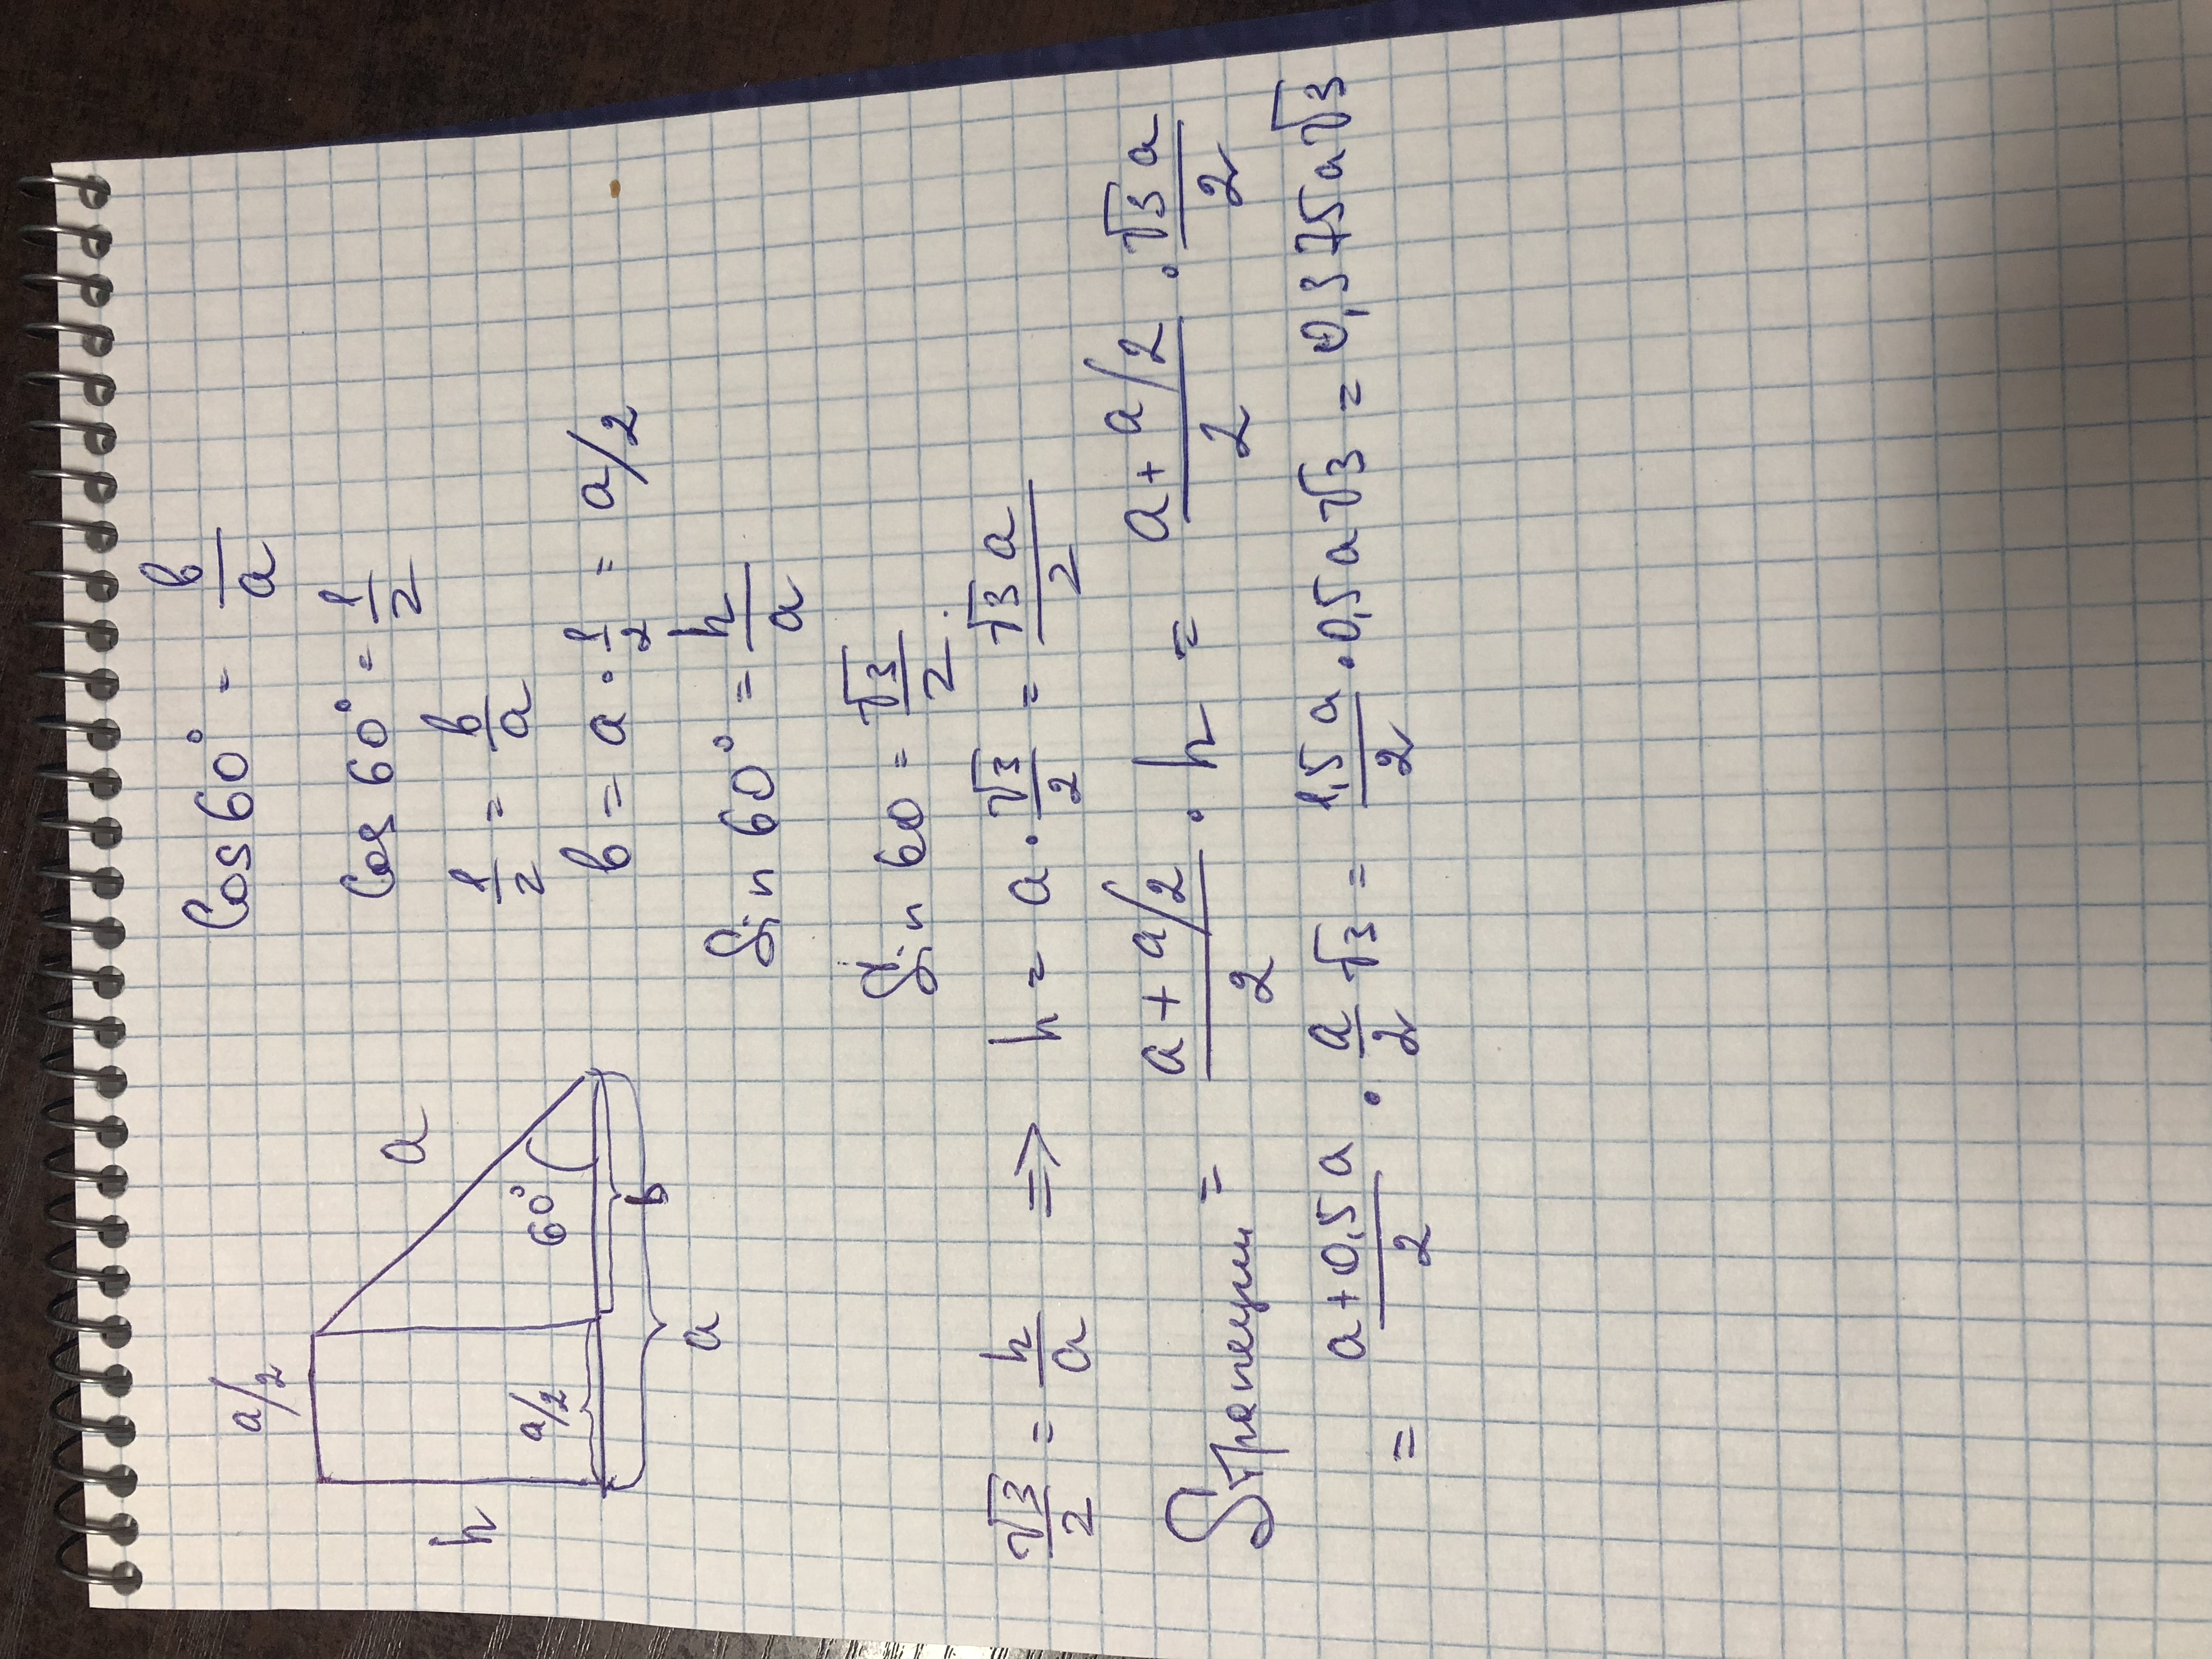 a/2
h
a
60°
a/2
b
a
Cos 60° = b/a
Cos 60° = 1/2
1/2 = b/a
b = a · 1/2 = a/2
Sin 60° = h/a
Sin 60 = √3/2
√3/2 = h/a ⇒ h = a · √3/2 = √3 a/2
Sтрапеции = (a + a/2)/2 · h = (a + a/2)/2 · √3 a/2
= (a + 0,5 a)/2 · a/2 √3 = 1,5 a/2 · 0,5 a √3 = 0,375 a √3